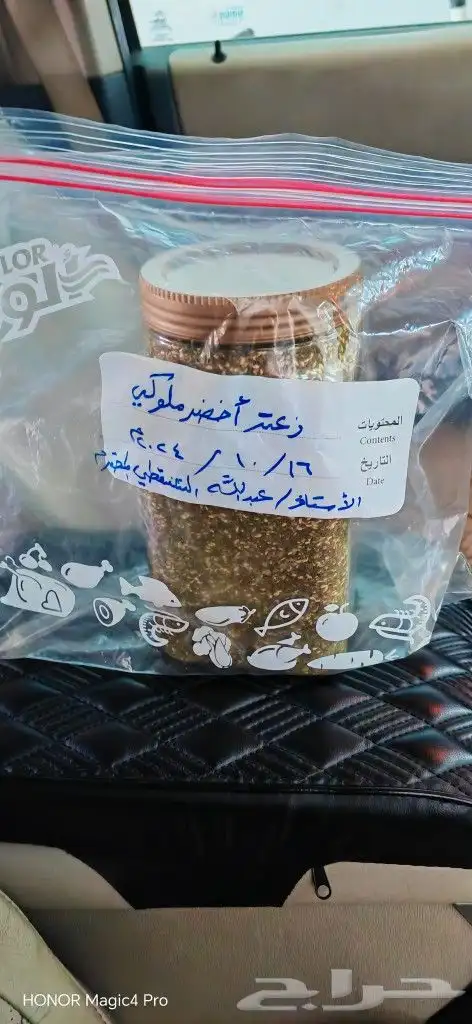 LOR
المحتويات
Contents
زعتر أخضر ملوكي
التاريخ
Date
١٦ / ١٠ / ٢٠٢٤م
الأستاذ / عبدالله الشنقيطي المحترم
HONOR Magic4 Pro
حراج